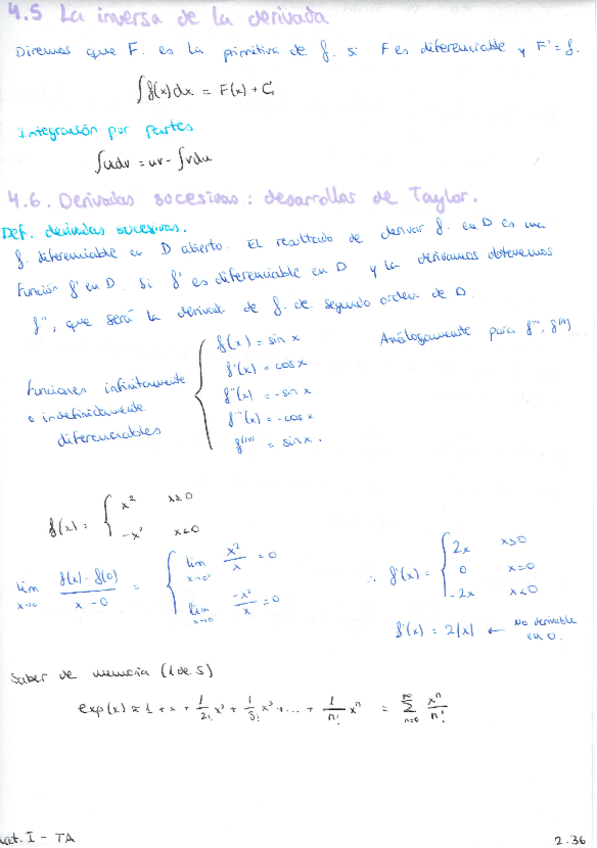 4.5 La inversa de la derivada
Diremos que F. es la primitiva de f. si F es diferenciable y F' = f.
∫f(x)dx = F(x) + C
Integración por partes
∫udv = uv - ∫vdu
4.6. Derivadas sucesivas: desarrollos de Taylor.
Def. derivadas sucesivas.
f. diferenciable en D abierto. El resultado de derivar f. en D es una
función f' en D. Si f' es diferenciable en D y la derivamos obtenemos
f'', que será la derivat de f. de segundo orden de D.
Análogamente para f''', f^(n)
Funciones infinitamente
o indefinidamente
diferenciables
f(x) = sin x
f'(x) = cos x
f''(x) = -sin x
f'''(x) = -cos x
f^(IV) = sin x.
f(x) = { x² x≥0
-x² x<0
lim x→0 f(x) - f(0) / x - 0 = { lim x→0⁺ x²/x = 0
lim x→0⁻ -x²/x = 0
∴ f'(x) = { 2x x>0
0 x=0
-2x x<0
f'(x) = 2|x| ← No derivable
en 0.
Saber de memoria (1 de 5)
exp(x) ≈ 1 + x + 1/2! x² + 1/3! x³ + ... + 1/n! xⁿ = ∑ n=0 ∞ xⁿ/n!
Mat. I - TA
2.36